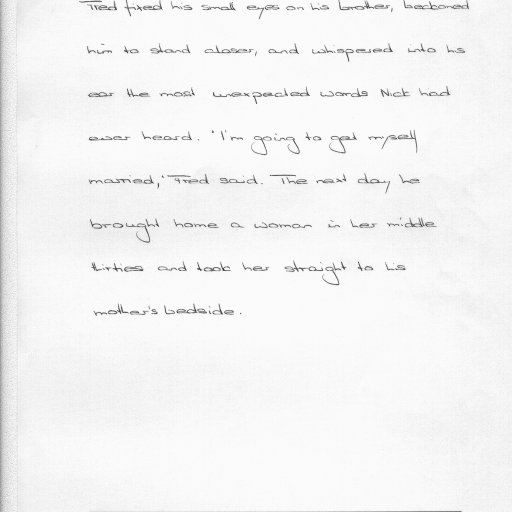 Fred fixed his small eyes on his brother, beckoned
him to stand closer, and whispered into his
ear the most unexpected words Nick had
ever heard. 'I'm going to get myself
married,' Fred said. The next day he
brought home a woman in her middle
thirties and took her straight to his
mother's bedside.